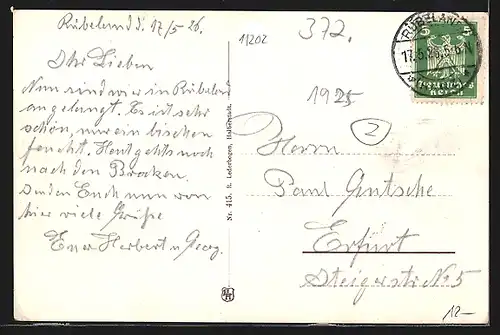 Rübeland d. 17/5 26.
Ihr Lieben
Nun sind wir in Rübeland
angelangt. Es ist sehr
schön, nur ein bischen
feucht. Heut gehts noch
nach den Brocken.
Sendet Euch nun von
hier viele Grüße
Euer Herbert u Georg.
11202
372.
1925
2
Nr. 415. R. Lederbogen, Halberstadt.
RÜBELAND
17.5.26.5-6N
5 5
Deutsches
Reich
Herrn
Paul Gutsche
Erfurt
Steigerstr No 5
12.-